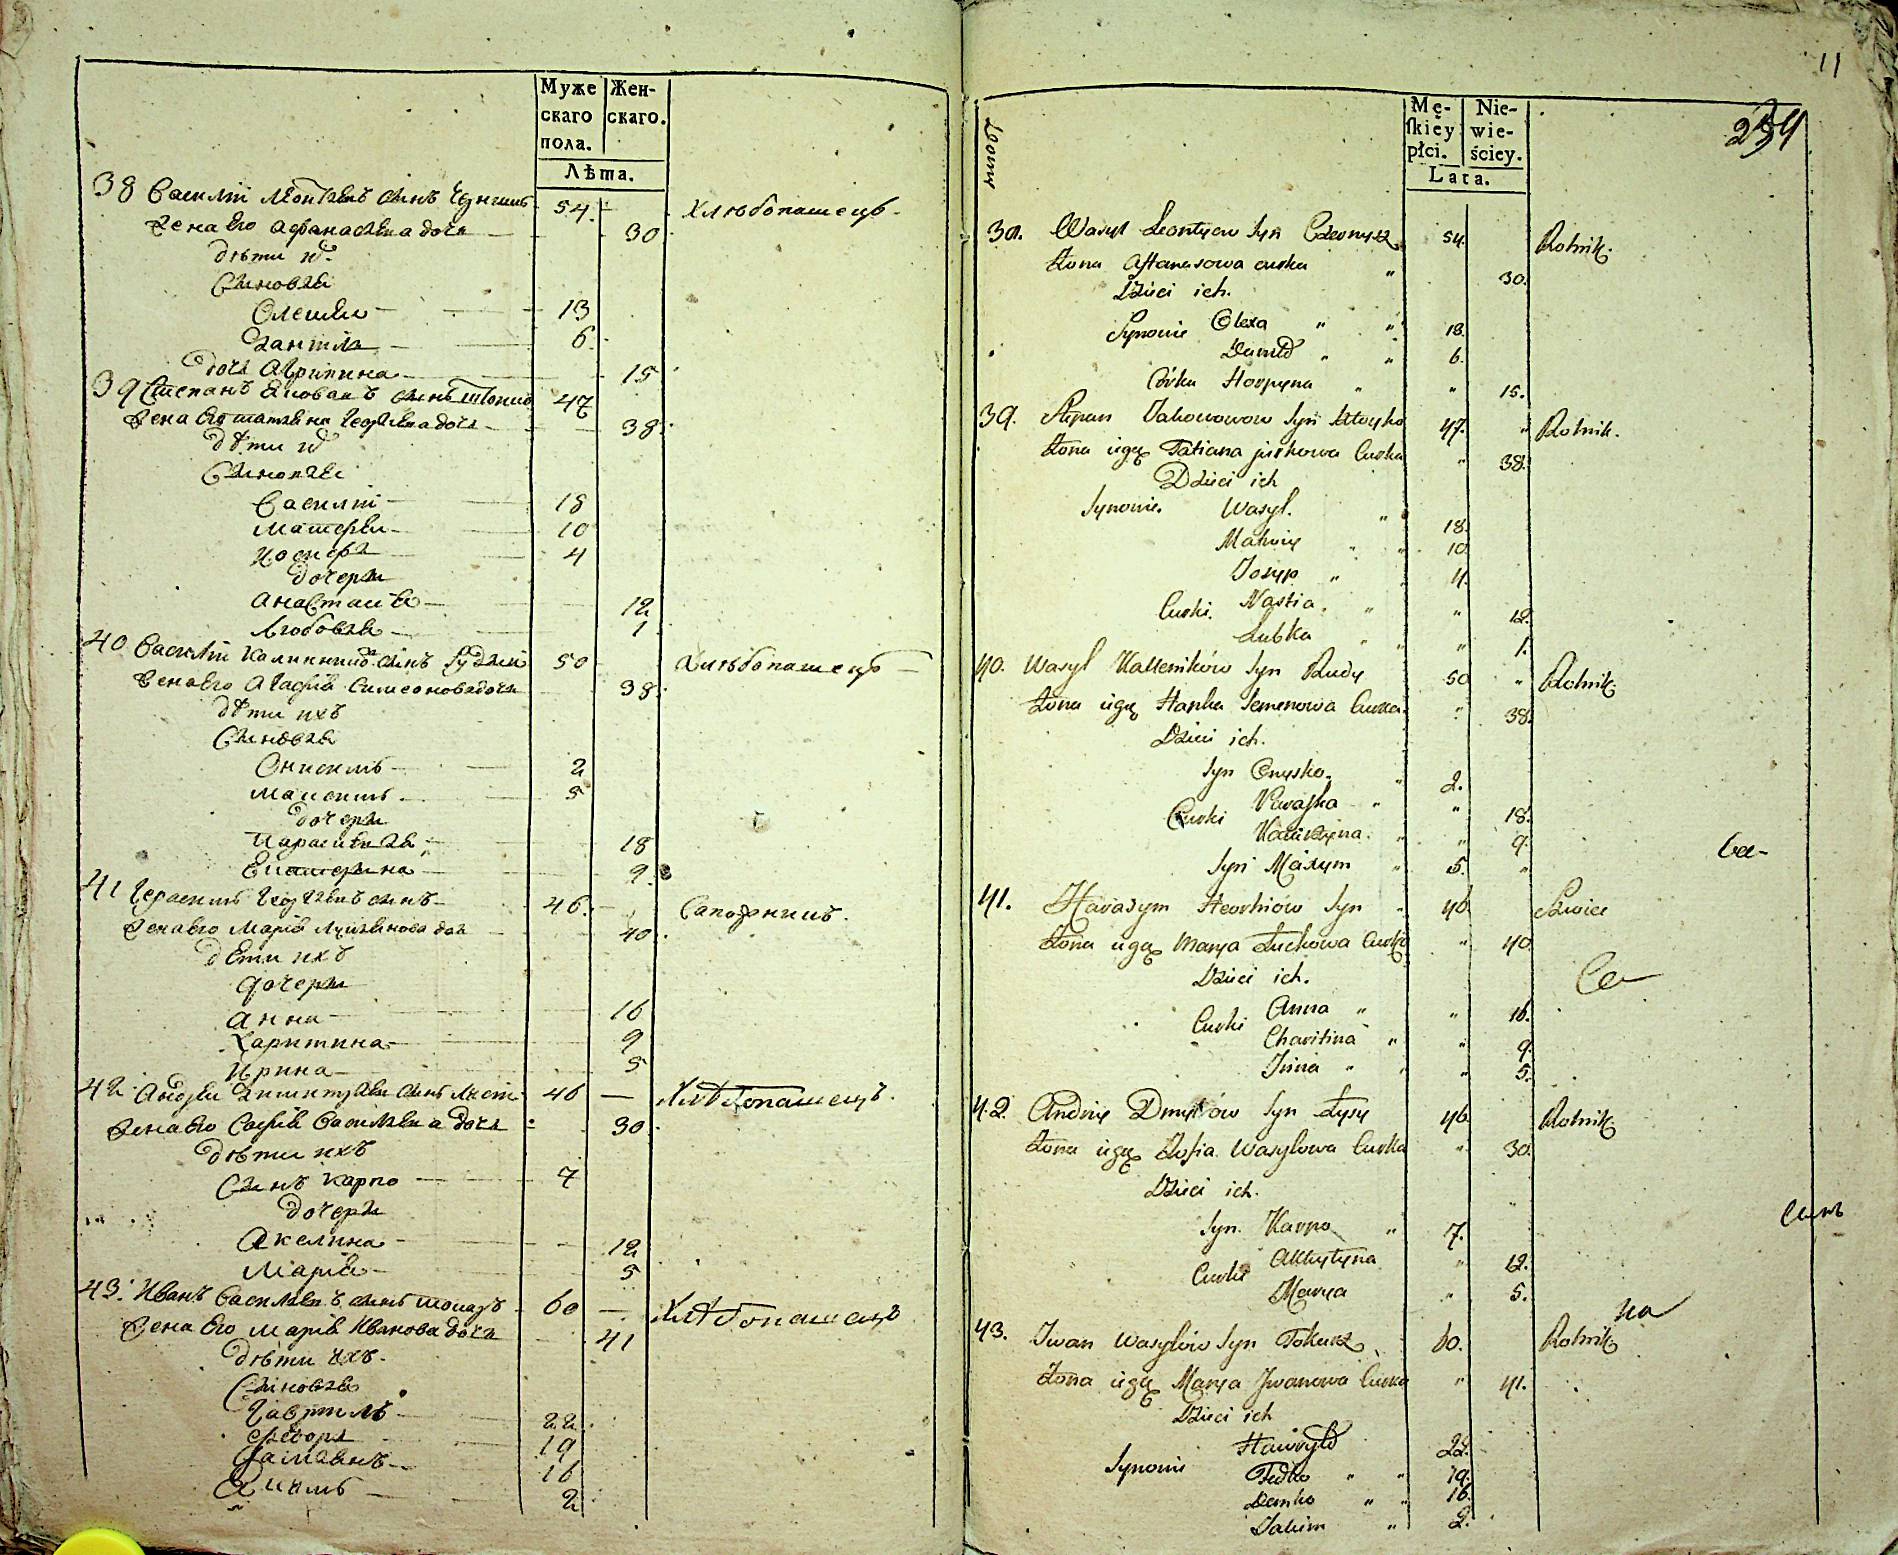 Муже
скаго
пола.
Жен-
скаго.
Лѣта.
38 Василій Леонтіевъ синъ 54 Хлѣбопашецъ
Жена его Афанасіева дочь 30
дѣти их
Синовья
Олешко 13
Данило 6
дочь Агрипина 15
39 Степанъ Яковлевъ синъ 47
Жена его татіяна Георгіева дочь 38
дѣти их
Синовья
Василій 18
Матфей 10
Иосифъ 4
дочери
Анастасія 12
Любовья 1
40 Василій Калинниковъ синъ Рудій 50 Хлѣбопашецъ
Жена его Агафія Симеонова дочь 38
дѣти ихъ
Синовья
Онисимъ 2
Максимъ 5
дочери
Параскевія 18
Екатерина 9
41 Герасимъ Георгіевъ синъ 46 Сапожникъ
Жена его Марія Лукіянова доч 40
дѣти ихъ
дочери
Анна 16
Харитина 9
Ирина 5
42 Андрей Димитріевъ синъ Лисій 46 — Хлѣбопашецъ
Жена его Софія Василіева дочь 30
дѣти ихъ
Синъ Карпо 7
дочери
Акелина 12
Марія 5
43 Иванъ Василіевъ синъ токаръ 60 — Хлѣбопашецъ
Жена его Марія Иванова дочь 41
дѣти ихъ
Синовья
Гавріилъ 22
Феодоръ 19
Даміянъ 16
Якимъ 2
11
234
Domy
Mę-
skiey
płci.
Nie-
wie-
ściey.
Lata.
38. Wasyl Leontyow Syn 54. Rolnik.
Żona Aftanasowa curka " 30.
Dzieci ich.
Synowie Olexa " " 13.
Daniło " " 6.
Córka Horpyna " " 15.
39. Stepan Jakowowow Syn 47. " Rolnik.
Żona iegę Tatiana jurkowa Curka " 38.
Dzieci ich
Synowie. Wasyl. " 18.
Matwiy " " 10.
Josyp " 4.
Curki. Nastia. " " 12.
Lubka " " 1.
40. Wasyl Kalleników Syn Rudy 50 " Rolnik.
Żona iegę Hanka Semenowa Curka. " 38.
Dzieci ich.
Syn Onysko. " 2.
Curki Paraska " " 18.
Katerzyna. " " 9.
Syn Maxym " 5. "
Се-
41. Harasym Heorhiow Syn " 46. Szwiec
Żona iegę Marya Łuckowa Curka " 40.
Се
Dzieci ich.
Curki Anna " " 16.
Charitina " " 9.
Irina " " " 5.
42. Andriy Dmytrów Syn Łysy 46. Rolnik.
Żona iegę Zofia Wasylowa Curka " 30.
Dzieci ich.
Syn. Karpo " 7.
Curki " 12.
Marya " 5.
43. Iwan Wasylów Syn Tokarz 60. Rolnik.
Żona iegę Marya Iwanowa Curka " 41.
Dzieci ich
Synowie Hawryło 22.
Fedko " " 19.
Demko " " 16.
Jakim " 2.